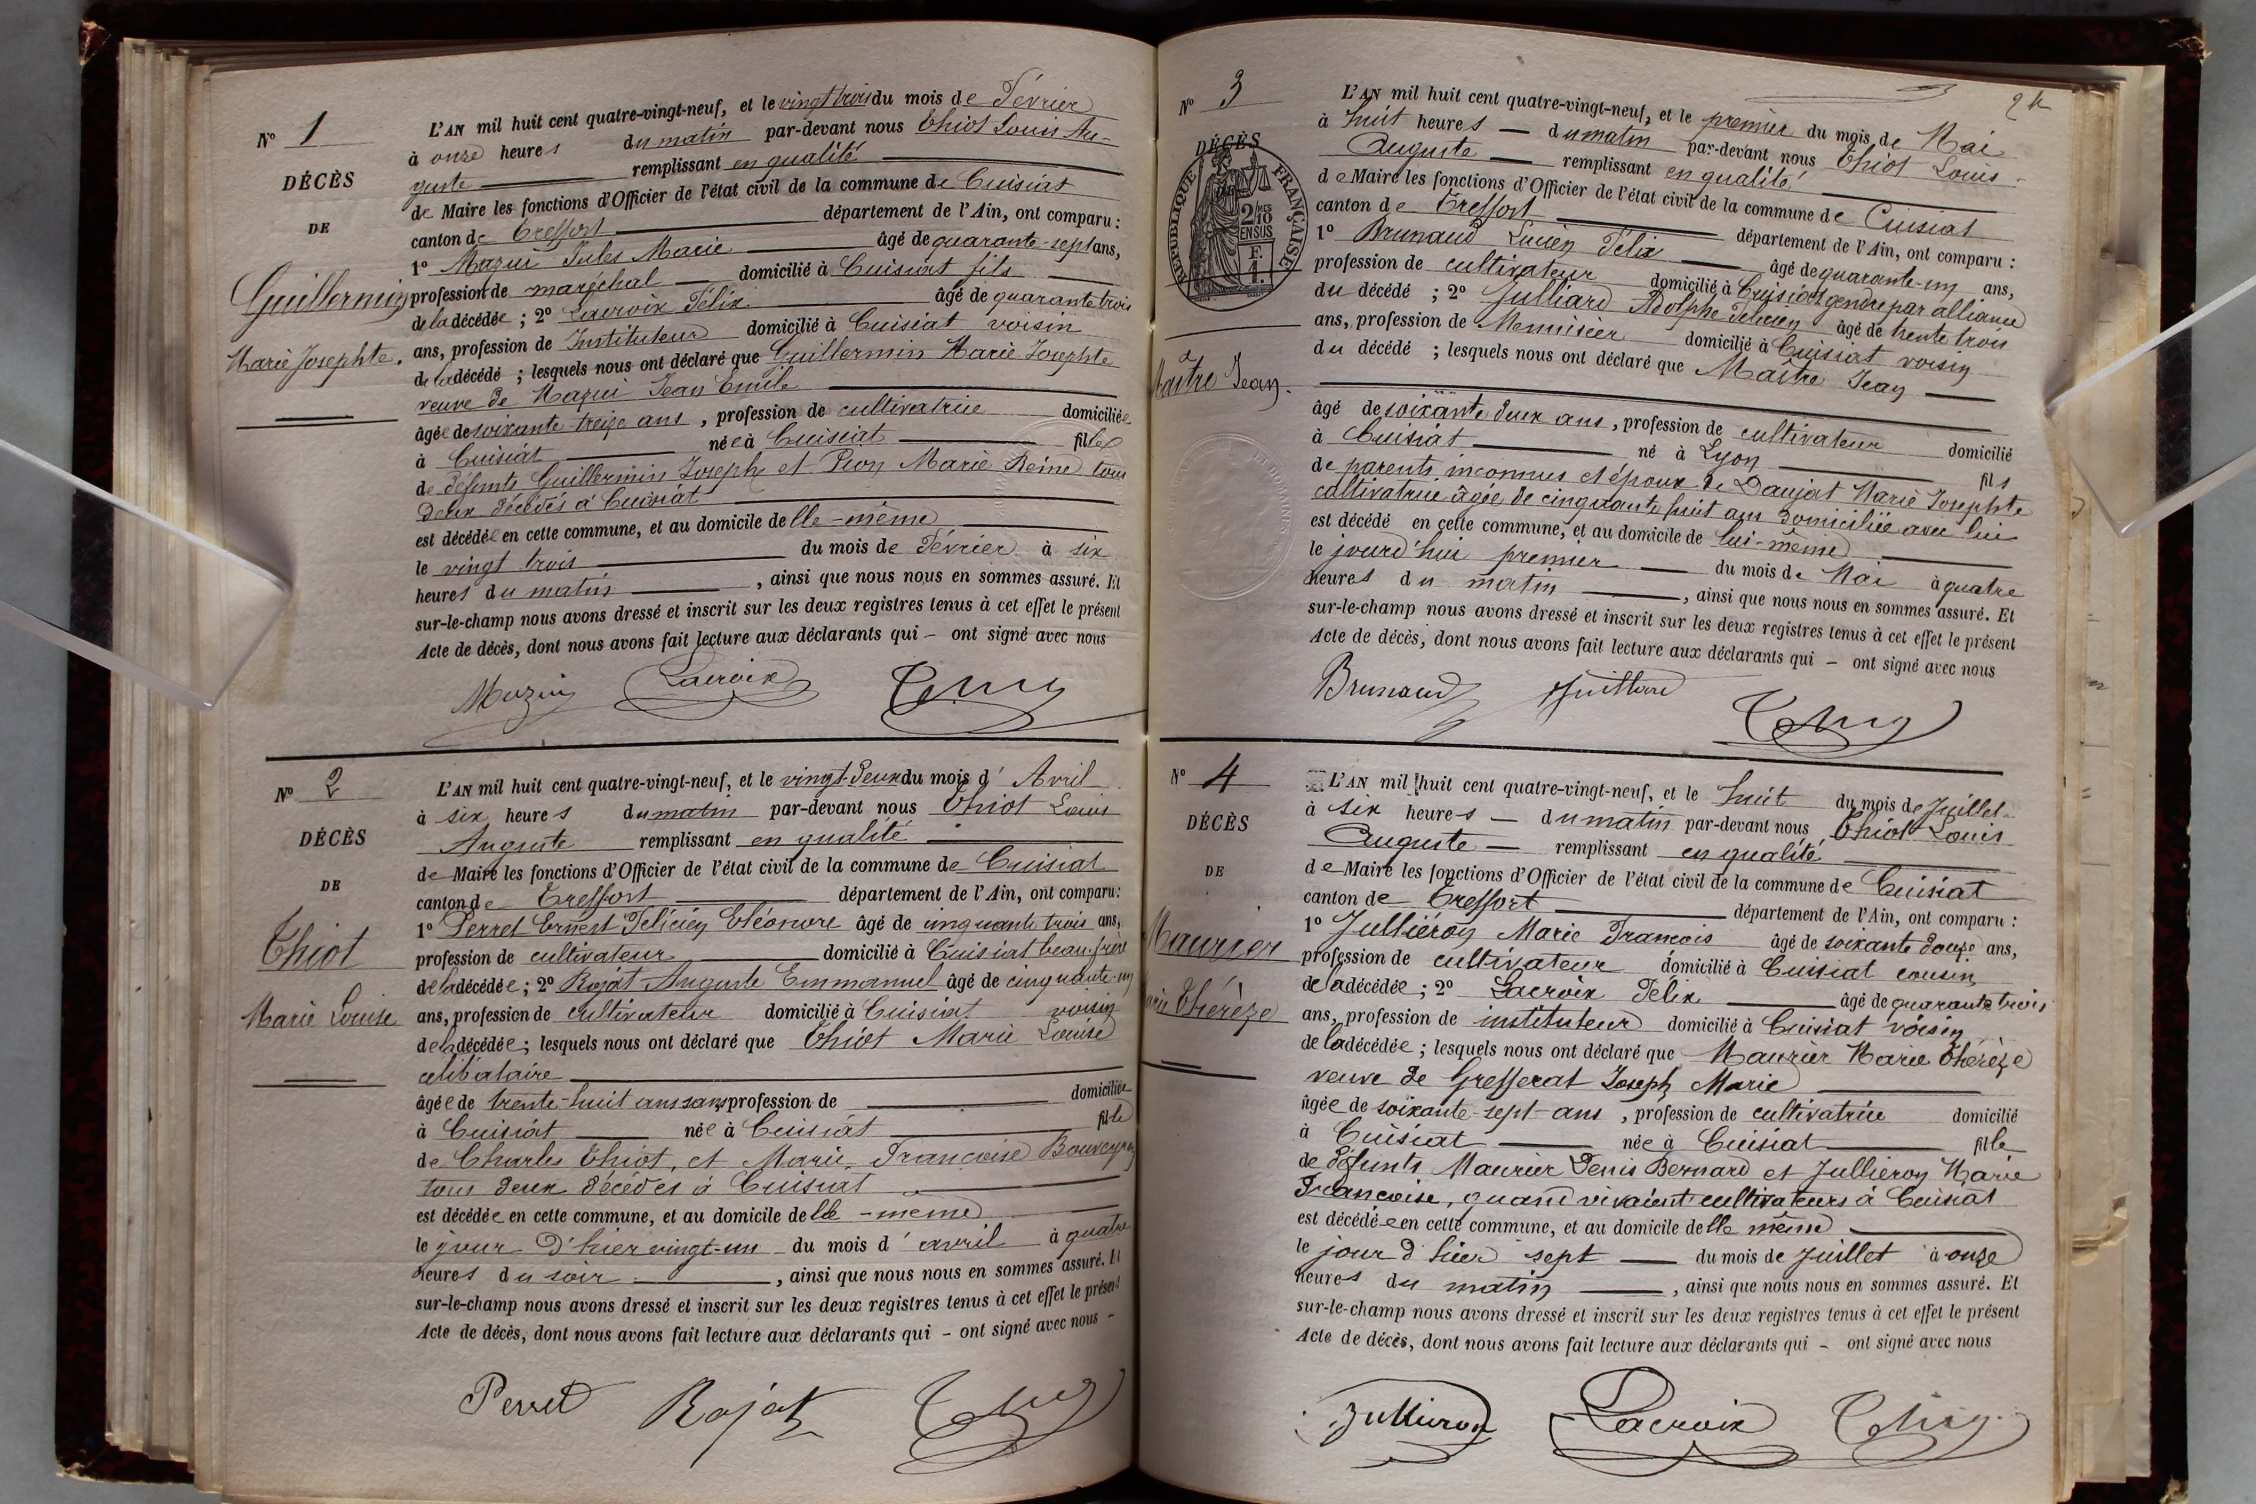 Nº 1
DÉCÈS
DE
Guillermin
Marie Josephte.
L'AN mil huit cent quatre-vingt-neuf, et le vingt trois du mois de Février
à onze heures du matin par-devant nous Thiot Louis Au-
guste remplissant en qualité
de Maire les fonctions d'Officier de l'état civil de la commune de Cuisiat
canton de Treffort département de l'Ain, ont comparu :
1º Mazui Jules Marie âgé de quarante-sept ans,
profession de maréchal domicilié à Cuisiat fils
de la décédée ; 2º Lacroix Félix âgé de quarante trois
ans, profession de Instituteur domicilié à Cuisiat voisin
de la décédé ; lesquels nous ont déclaré que Guillermin Marie Josephte
veuve de Mazui Jean Emile
âgée de soixante treize ans, profession de cultivatrice domiciliée
à Cuisiat née à Cuisiat fille
de défunts Guillermin Joseph et Pion Marie Reine tous
deux décédés à Cuisiat
est décédée en cette commune, et au domicile de lle-même
le vingt trois du mois de Février à six
heures du matin, ainsi que nous nous en sommes assuré. Et
sur-le-champ nous avons dressé et inscrit sur les deux registres tenus à cet effet le présent
Acte de décès, dont nous avons fait lecture aux déclarants qui – ont signé avec nous
Mazui Lacroix
Nº 2
DÉCÈS
DE
Thiot
Marie Louise
L'AN mil huit cent quatre-vingt-neuf, et le vingt-deux du mois d' Avril
à six heures du matin par-devant nous Thiot Louis
Auguste remplissant en qualité
de Maire les fonctions d'Officier de l'état civil de la commune de Cuisiat
canton de Treffort département de l'Ain, ont comparu:
1º Perret Ernest Félicien Eléonore âgé de cinquante trois ans,
profession de cultivateur domicilié à Cuisiat beau-frère
de la décédée ; 2º Rojat Auguste Emmanuel âgé de cinquante-un
ans, profession de cultivateur domicilié à Cuisiat voisin
de la décédée ; lesquels nous ont déclaré que Thiot Marie Louise
célibataire
âgée de trente-huit ans sans profession de domiciliée
à Cuisiat née à Cuisiat fille
de Charles Thiot, et Marie Françoise Bouveyron
tous deux décédés à Cuisiat
est décédée en cette commune, et au domicile de lle-même
le jour d'hier vingt-un du mois d' avril à quatre
heures du soir, ainsi que nous nous en sommes assuré. Et
sur-le-champ nous avons dressé et inscrit sur les deux registres tenus à cet effet le présent
Acte de décès, dont nous avons fait lecture aux déclarants qui – ont signé avec nous –
Perret Rojat
Nº 3
DÉCÈS
RÉPUBLIQUE FRANÇAISE
2/10 MES
EN SUS
F.
1.
Maître Jean.
L'AN mil huit cent quatre-vingt-neuf, et le premier du mois de Mai
à huit heures – du matin par-devant nous Thiot Louis
Auguste remplissant en qualité
de Maire les fonctions d'Officier de l'état civil de la commune de Cuisiat
canton de Treffort département de l'Ain, ont comparu :
1º Brunaud Lucien Félix âgé de quarante-un ans,
profession de cultivateur domicilié à Cuisiat gendre par alliance
du décédé ; 2º Julliard Adolphe Félicien âgé de trente trois
ans, profession de Menuisier domicilié à Cuisiat voisin
du décédé ; lesquels nous ont déclaré que Maître Jean
âgé de soixante deux ans, profession de cultivateur domicilié
à Cuisiat né à Lyon fils
de parents inconnus et époux de Daujat Marie Josephte
cultivatrice âgée de cinquante huit ans domiciliée avec lui
est décédé en cette commune, et au domicile de lui-même
le jourd'hui premier du mois de Mai à quatre
heures du matin, ainsi que nous nous en sommes assuré. Et
sur-le-champ nous avons dressé et inscrit sur les deux registres tenus à cet effet le présent
Acte de décès, dont nous avons fait lecture aux déclarants qui – ont signé avec nous
Brunaud Juilliard
Nº 4
DÉCÈS
DE
Maurier
Marie Thérèze
L'AN mil huit cent quatre-vingt-neuf, et le huit du mois de Juillet
à six heures – du matin par-devant nous Thiot Louis
Auguste – remplissant en qualité
de Maire les fonctions d'Officier de l'état civil de la commune de Cuisiat
canton de Treffort département de l'Ain, ont comparu :
1º Julliéron Marie François âgé de soixante douze ans,
profession de cultivateur domicilié à Cuisiat cousin
de la décédée ; 2º Lacroix Félix âgé de quarante trois
ans, profession de instituteur domicilié à Cuisiat voisin
de la décédée ; lesquels nous ont déclaré que Maurier Marie Thérèze
veuve de Gresserat Joseph Marie
âgée de soixante-sept ans, profession de cultivatrice domicilié
à Cuisiat née à Cuisiat fille
de défunts Maurier Denis Bernard et Jullieron Marie
Françoise, quand vivaient cultivateurs à Cuisiat
est décédée en cette commune, et au domicile de lle même
le jour d'hier sept du mois de Juillet à onze
heures du matin, ainsi que nous nous en sommes assuré. Et
sur-le-champ nous avons dressé et inscrit sur les deux registres tenus à cet effet le présent
Acte de décès, dont nous avons fait lecture aux déclarants qui – ont signé avec nous
Jullieron Lacroix